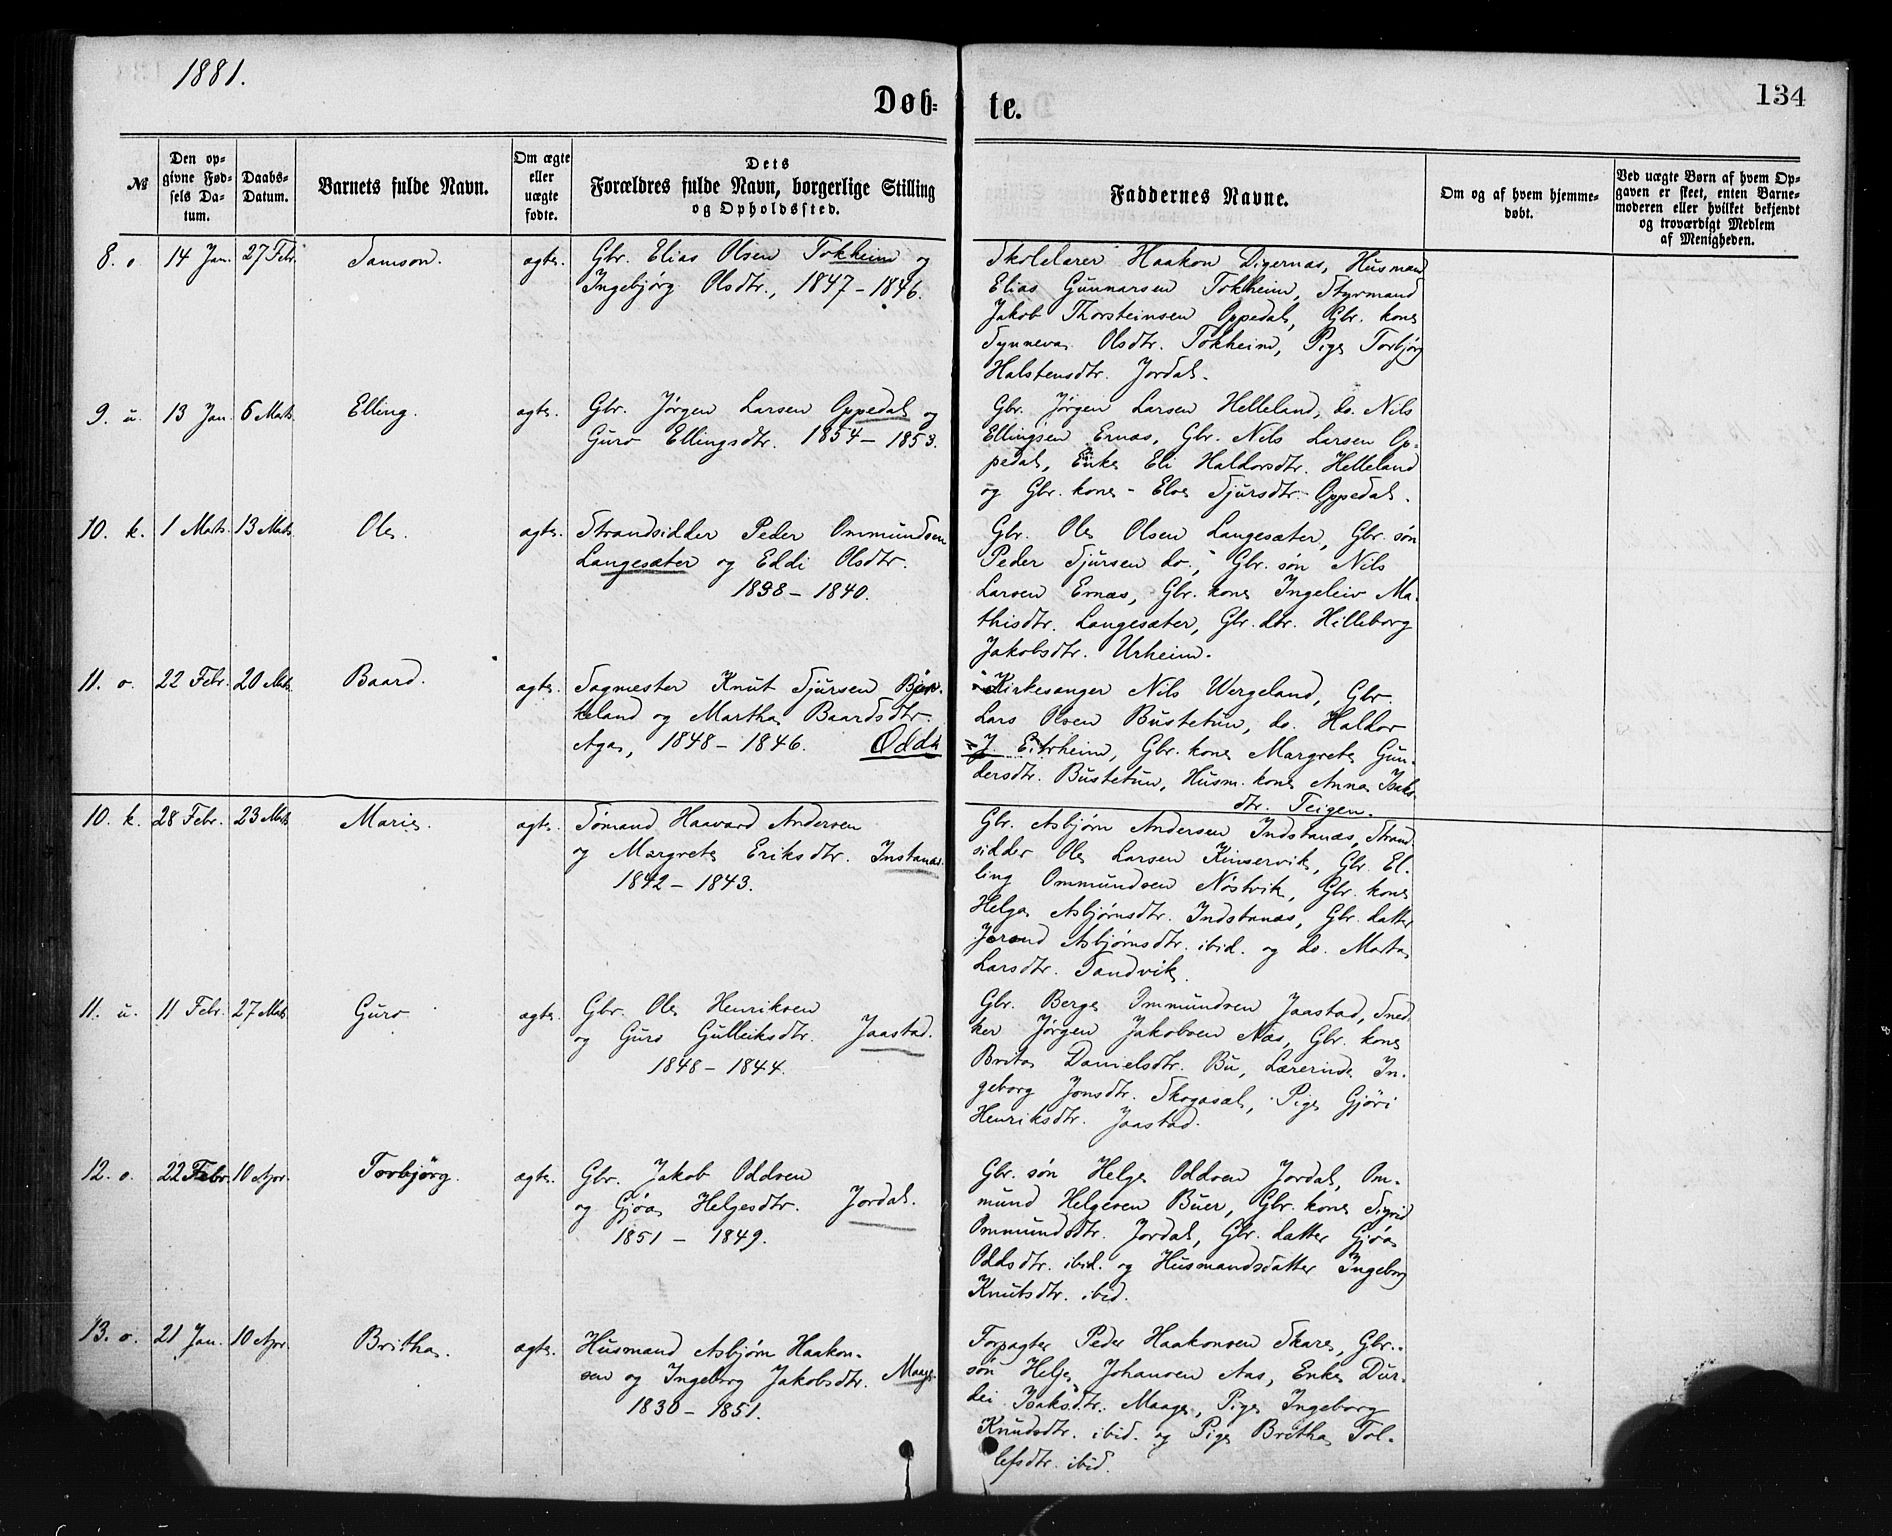 1881.
Døb-
te.
134
№
Den op-
givne Fød-
sels Da-
tum.
Daabs-
Datum.
Barnets fulde Navn.
Om ægte
eller
uægte
fødte.
Dets
Forældres fulde Navn, borgerlige Stilling
og Opholdssted.
Faddernes Navne.
Om og af hvem hjemme-
døbt.
Ved uægte Børn af hvem Op-
gaven er skeet, enten Barne-
moderen eller hvilket bekjendt
og troværdigt Medlem
af Menigheden.
8. o. 14 Jan. 27 Febr. Samson. ægte.
Gbr. Elias Olsen Tokheim og
Ingebjørg Olsdtr., 1847 – 1846.
Skolelærer Haakon Digernæs, Husmand
Elias Gunnarsen Tokheim, Styrmand
Jakob Thorsteinsen Oppedal, Gbr. kone
Synneva Olsdtr. Tokheim, Pige Torbjørg
Halstensdtr. Jordal.
9. u. 13 Jan. 6 Marts Elling. ægte.
Gbr. Jørgen Larsen Oppedal og
Guro Ellingsdtr. 1854 – 1853.
Gbr. Jørgen Larsen Helleland, do. Nils
Ellingsen Ernæs, Gbr. Nils Larsen Op-
pedal, Enke Eli Haldorsdtr. Helleland
og Gbr. kone - Eloe Sjursdtr. Oppedal.
10. k. 1 Marts. 13 Marts Ole. ægte.
Strandsidder Peder Ommundsen
Langesæter og Eddi Olsdtr.
1838 – 1840.
Gbr. Ole Olsen Langesæter, Gbr. søn
Peder Sjursen do., Gbr. søn Nils
Larsen Ernæs, Gbr. kone Ingeleiv Ma-
thisdtr. Langesæter, Gbr. dtr. Hilleborg
Jakobsdtr. Urheim.
11. o. 22 Febr. 20 Marts Baard. ægte.
Sagmester Knut Sjursen Bjør-
keland og Martha Baardsdtr.
Aga, 1848 – 1846. Odda
Kirkesanger Nils Wergeland, Gbr.
Lars Olsen Bustetun, do. Haldor
J. Eitrheim, Gbr. kone Margrete Gun-
dersdtr. Bustetun, Husm. kone Anna Isaks-
dtr. Teigen.
10. k. 28 Febr. 23 Marts Marie. ægte.
Sømand Haavard Andersen
og Margrete Eriksdtr. Instanæs.
1842 – 1843.
Gbr. Asbjørn Andersen Indstanæs, Strand-
sidder Ole Larsen Kinservik, Gbr. El-
ling Ommundsen Nøstvik, Gbr. kone
Helga Asbjørnsdtr. Indstanæs, Gbr. datter
Jorand Asbjørnsdtr. ibid. og do. Marta
Larsdtr. Sandvik.
11. u. 11 Febr. 27 Marts Guro ægte.
Gbr. Ole Henriksen
og Guro Gulleiksdtr. Jaastad.
1848 – 1844.
Gbr. Berge Ommundsen Jaastad, Sned-
ker Jørgen Jakobsen Næs, Gbr. kone
Brita Danielsdtr. Bu, Lærerinde In-
geborg Jonsdtr. Skogasæl, Pige Gjøri
Henriksdtr. Jaastad.
12. o. 22 Febr. 10 Apr. Torbjørg. ægte.
Gbr. Jakob Oddsen
og Gjøa Helgesdtr. Jordal.
1851 – 1849.
Gbr. søn Helge Oddsen Jordal, Om-
mund Helgesen Buer, Gbr. kone Sigrid
Ommundsdtr. Jordal, Gbr. datter Gjøa
Oddsdtr. ibid. og Husmandsdatter Ingeborg
Knutsdtr. ibid.
13. o. 21 Jan. 10 Apr. Britha. ægte.
Husmand Asbjørn Haakon-
sen og Ingeborg Jakobsdtr. Maage.
1830 – 1851.
Forpagter Peder Haakonsen Skare, Gbr.
søn Helje Johansen Aas, Enke Dur-
dei Isaksdtr. Maage, Pige Ingeborg
Knudsdtr. ibid. og Pige Britha Tol-
lefsdtr. ibid.